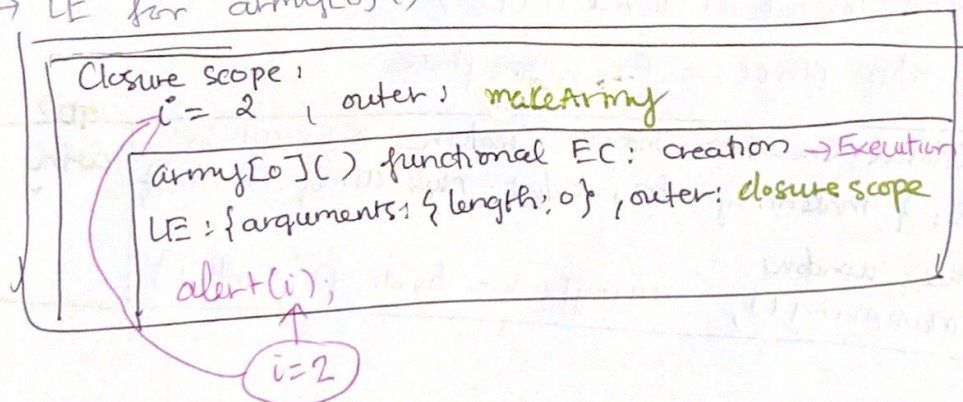 → LE for army[0]()
Closure scope:
i = 2 , outer: makeArmy
army[0]() functional EC: creation → Execution
LE: {arguments: {length: 0}, outer: closure scope
alert(i);
i=2